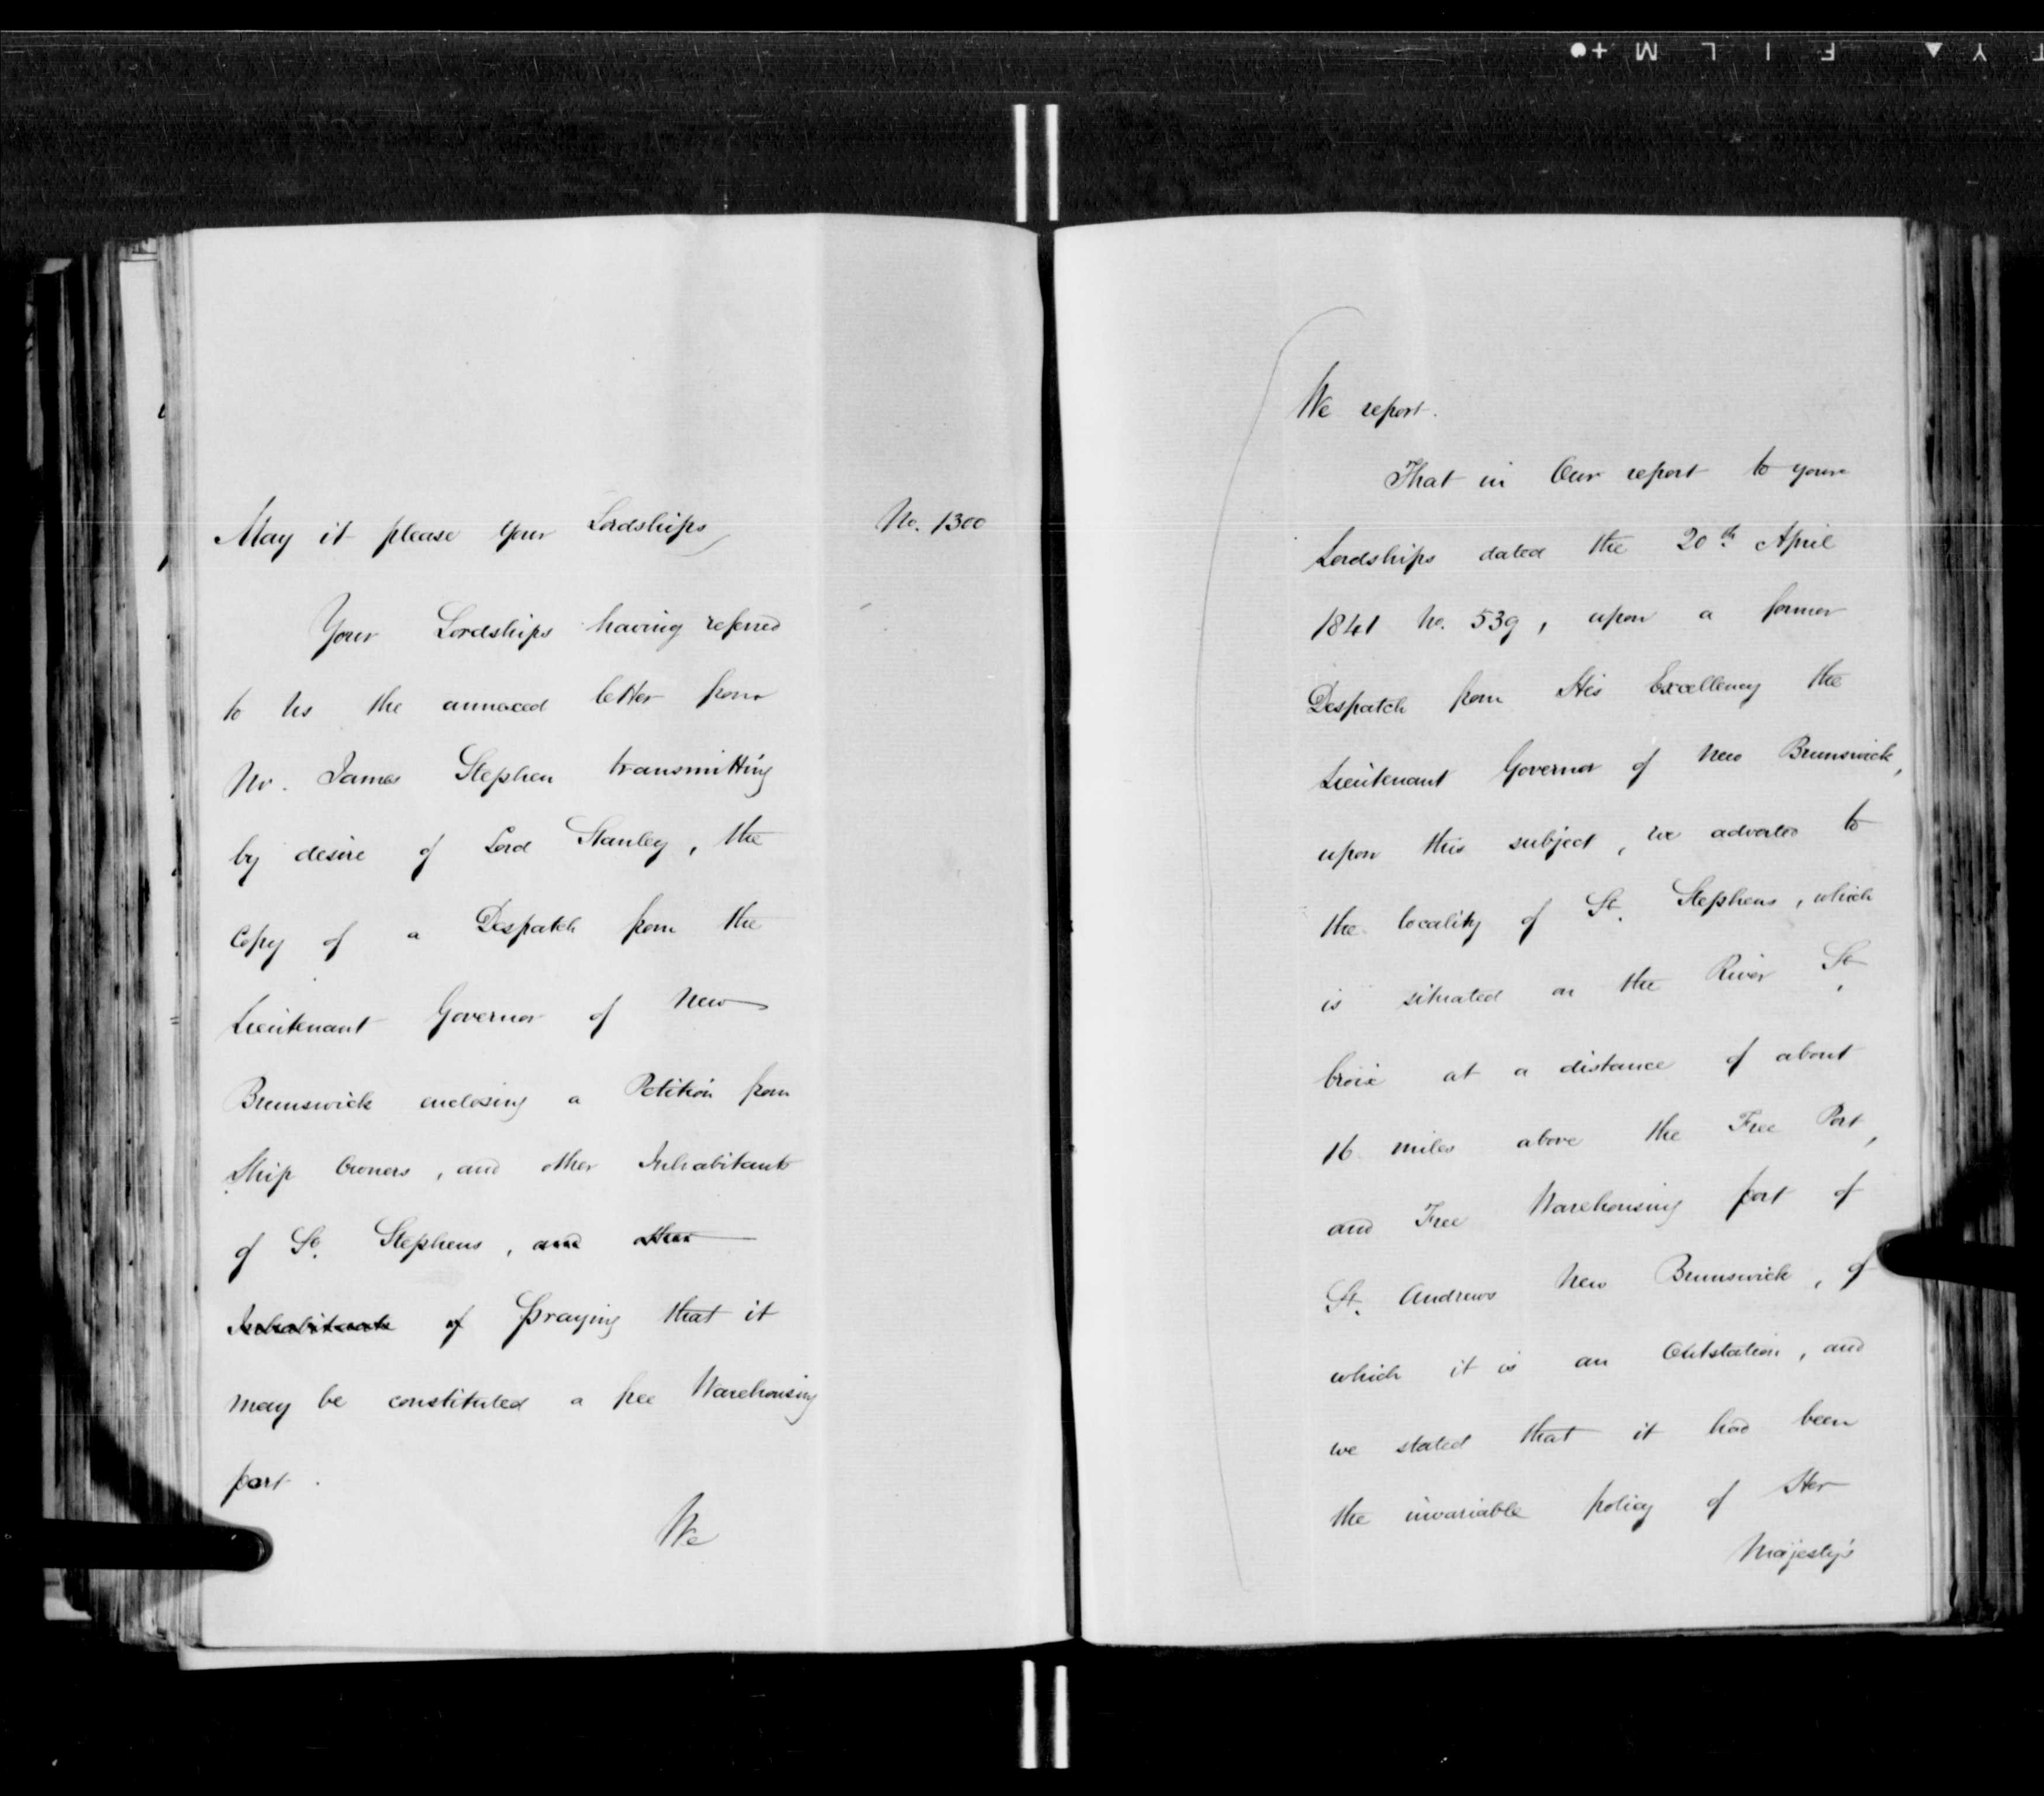 May it please Your Lordships,
No. 1300
Your Lordships having referred
to Us the annexed letter from
Mr. James Stephen transmitting
by desire of Lord Stanley, the
Copy of a Despatch from the
Lieutenant Governor of New
Brunswick enclosing a Petition from
Ship Owners, and other Inhabitants
of St. Stephens, and other
Inhabitants of praying that it
may be constituted a free Warehousing
port.
We
We report.
That in Our report to your
Lordships dated the 20th April
1841 No. 539, upon a former
Despatch from His Excellency the
Lieutenant Governor of New Brunswick,
upon this subject, we adverted to
the locality of St. Stephens, which
is situated on the River St.
Croix at a distance of about
16 miles above the Free Port,
and Free Warehousing port of
St. Andrews New Brunswick, of
which it is an Outstation, and
we stated that it had been
the invariable policy of Her
Majesty's
T Y ▲ F I L M +●